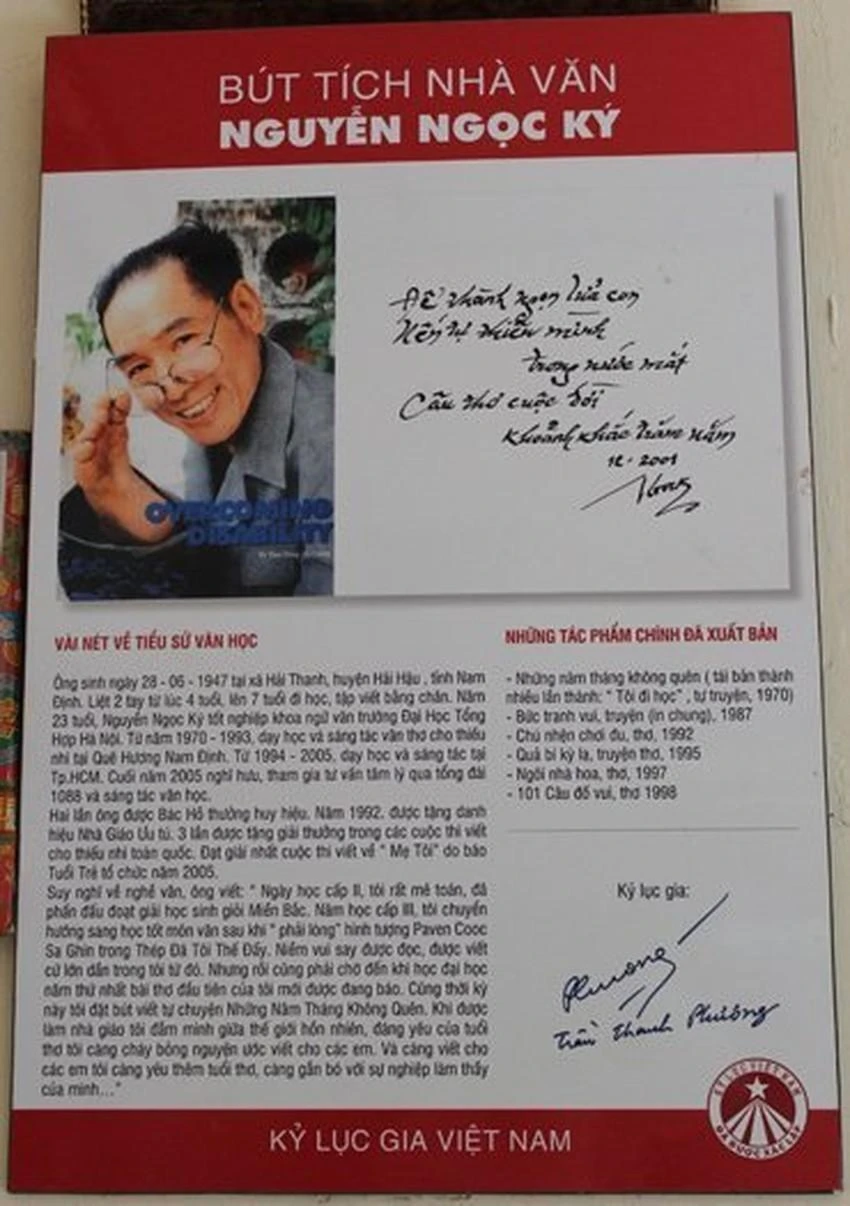 BÚT TÍCH NHÀ VĂN
NGUYỄN NGỌC KÝ
Để thành ngọn lửa con
Nến tự thiêu mình
trong nước mắt
Câu thơ cuộc đời
Khoảnh khắc trăm năm
12 - 2001
OVERCOMING
DISABILITY
VÀI NÉT VỀ TIỂU SỬ VĂN HỌC
Ông sinh ngày 28 - 06 - 1947 tại xã Hải Thanh, huyện Hải Hậu , tỉnh Nam
Định. Liệt 2 tay từ lúc 4 tuổi, lên 7 tuổi đi học, tập viết bằng chân. Năm
23 tuổi, Nguyễn Ngọc Ký tốt nghiệp khoa ngữ văn trường Đại Học Tổng
Hợp Hà Nội. Từ năm 1970 - 1993, dạy học và sáng tác văn thơ cho thiếu
nhi tại Quê Hương Nam Định. Từ 1994 - 2005, dạy học và sáng tác tại
Tp.HCM. Cuối năm 2005 nghỉ hưu, tham gia tư vấn tâm lý qua tổng đài
1088 và sáng tác văn học.
Hai lần ông được Bác Hồ thưởng huy hiệu. Năm 1992, được tặng danh
hiệu Nhà Giáo Ưu tú. 3 lần được tặng giải thưởng trong các cuộc thi viết
cho thiếu nhi toàn quốc. Đạt giải nhất cuộc thi viết về " Mẹ Tôi" do báo
Tuổi Trẻ tổ chức năm 2005.
Suy nghĩ về nghề văn, ông viết: " Ngày học cấp II, tôi rất mê toán, đã
phấn đấu đoạt giải học sinh giỏi Miền Bắc. Năm học cấp III, tôi chuyển
hướng sang học tốt môn văn sau khi " phải lòng" hình tượng Paven Cooc
Sa Ghin trong Thép Đã Tôi Thế Đấy. Niềm vui say được đọc, được viết
cứ lớn dần trong tôi từ đó. Nhưng rồi cũng phải chờ đến khi học đại học
năm thứ nhất bài thơ đầu tiên của tôi mới được đăng báo. Cũng thời kỳ
này tôi đặt bút viết tự chuyện Những Năm Tháng Không Quên. Khi được
làm nhà giáo tôi đắm mình giữa thế giới hồn nhiên, đáng yêu của tuổi
thơ tôi càng cháy bỏng nguyện ước viết cho các em. Và càng viết cho
các em tôi càng yêu thêm tuổi thơ, càng gắn bó với sự nghiệp làm thầy
của mình..."
NHỮNG TÁC PHẨM CHÍNH ĐÃ XUẤT BẢN
- Những năm tháng không quên ( tái bản thành
nhiều lần thành: " Tôi đi học" , tự truyện, 1970)
- Bức tranh vui, truyện (in chung), 1987
- Chú nhện chơi đu, thơ, 1992
- Quả bí kỳ lạ, truyện thơ, 1995
- Ngôi nhà hoa, thơ, 1997
- 101 Câu đố vui, thơ 1998
Kỷ lục gia:
Phương
Trần Thanh Phương
KỶ LỤC VIỆT NAM
ĐÃ ĐƯỢC XÁC LẬP
KỶ LỤC GIA VIỆT NAM